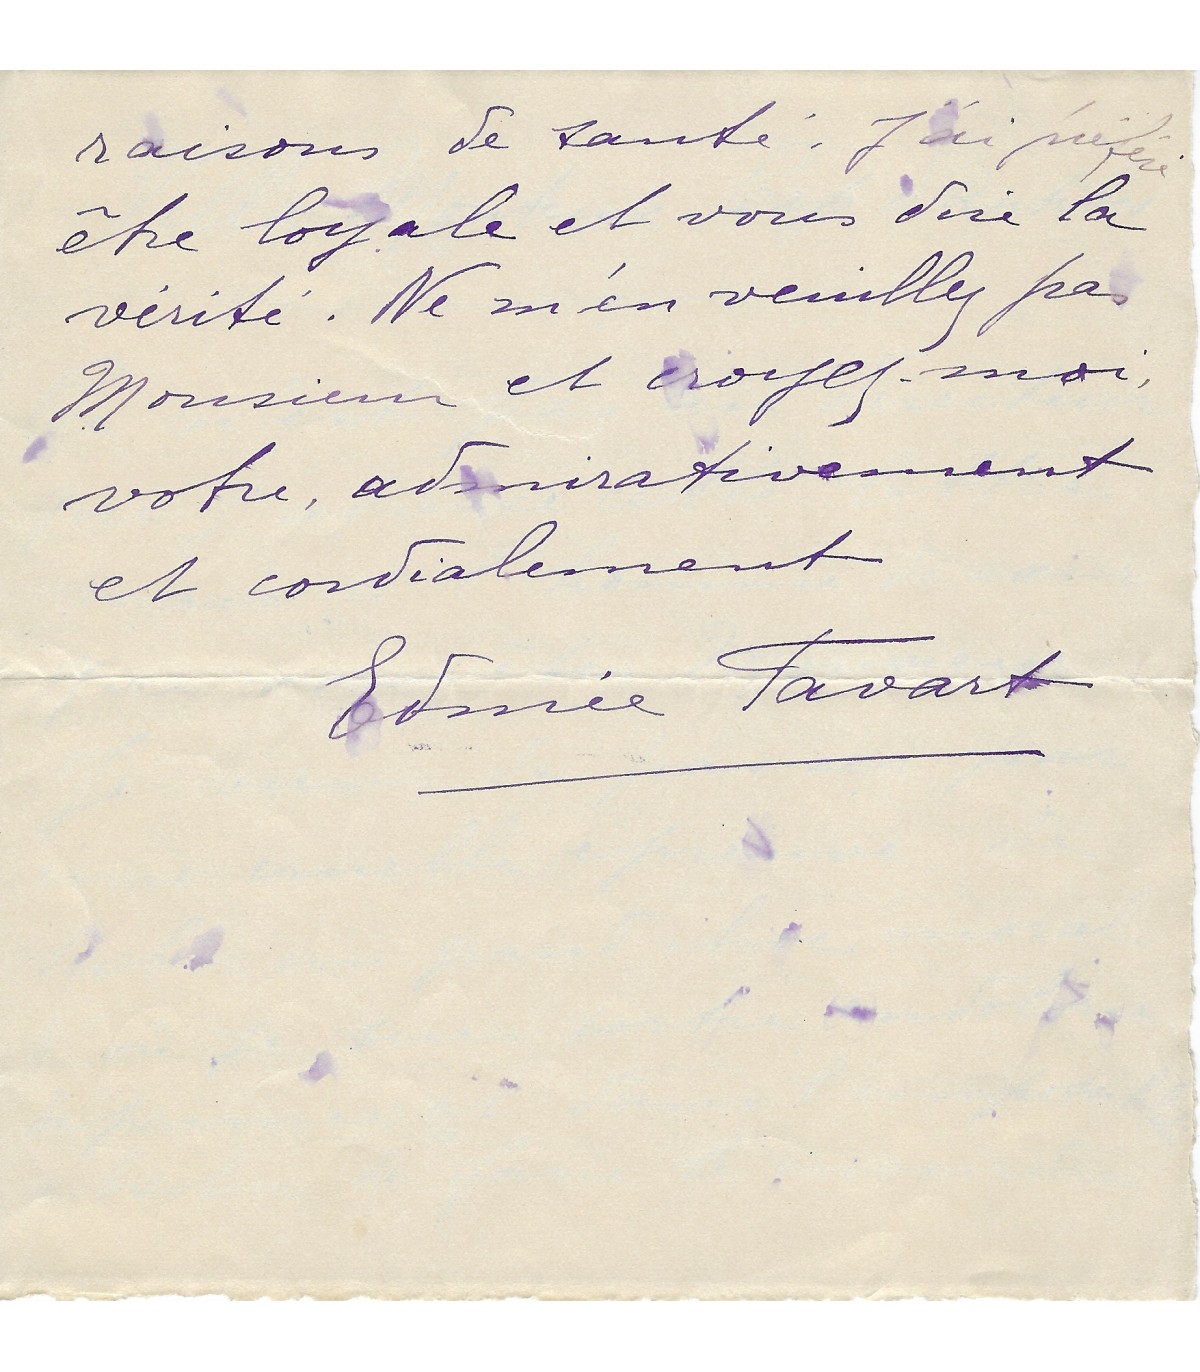 raisons de santé. J'ai préféré
être loyale et vous dire la
vérité. Ne m'en veuilley pas
Monsieur et croyez-moi,
votre, admirativement
et cordialement
Edmée Favart